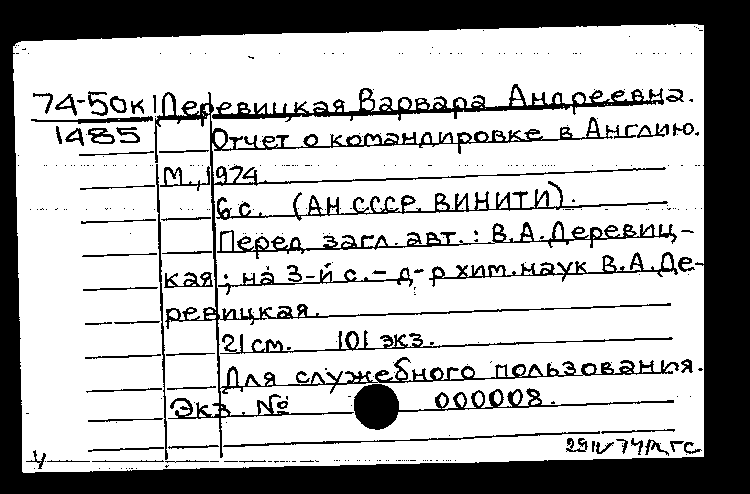 74-50к Деревицкая, Варвара Андреевна.
1485 Отчет о командировке в Англию.
М., 1974.
6 с. (АН СССР. ВИНИТИ).
Перед загл. авт.: В.А.Деревиц-
кая; на 3-й с. - д-р хим. наук В.А.Де-
ревицкая.
21 см. 101 экз.
Для служебного пользования.
Экз. № 000008.